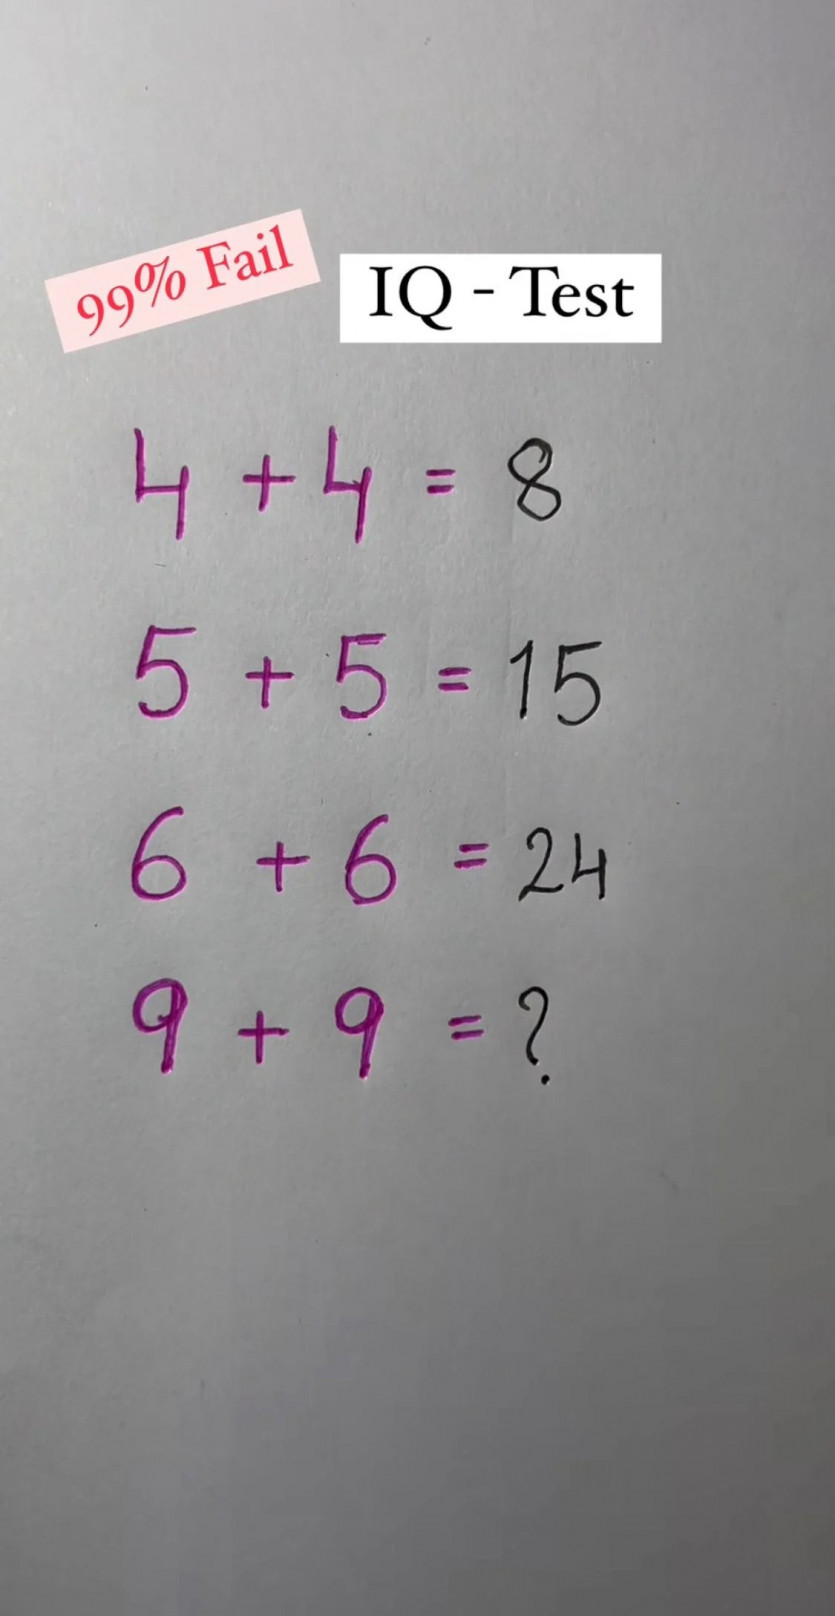 99% Fail
IQ - Test
4 + 4 = 8
5 + 5 = 15
6 + 6 = 24
9 + 9 = ?